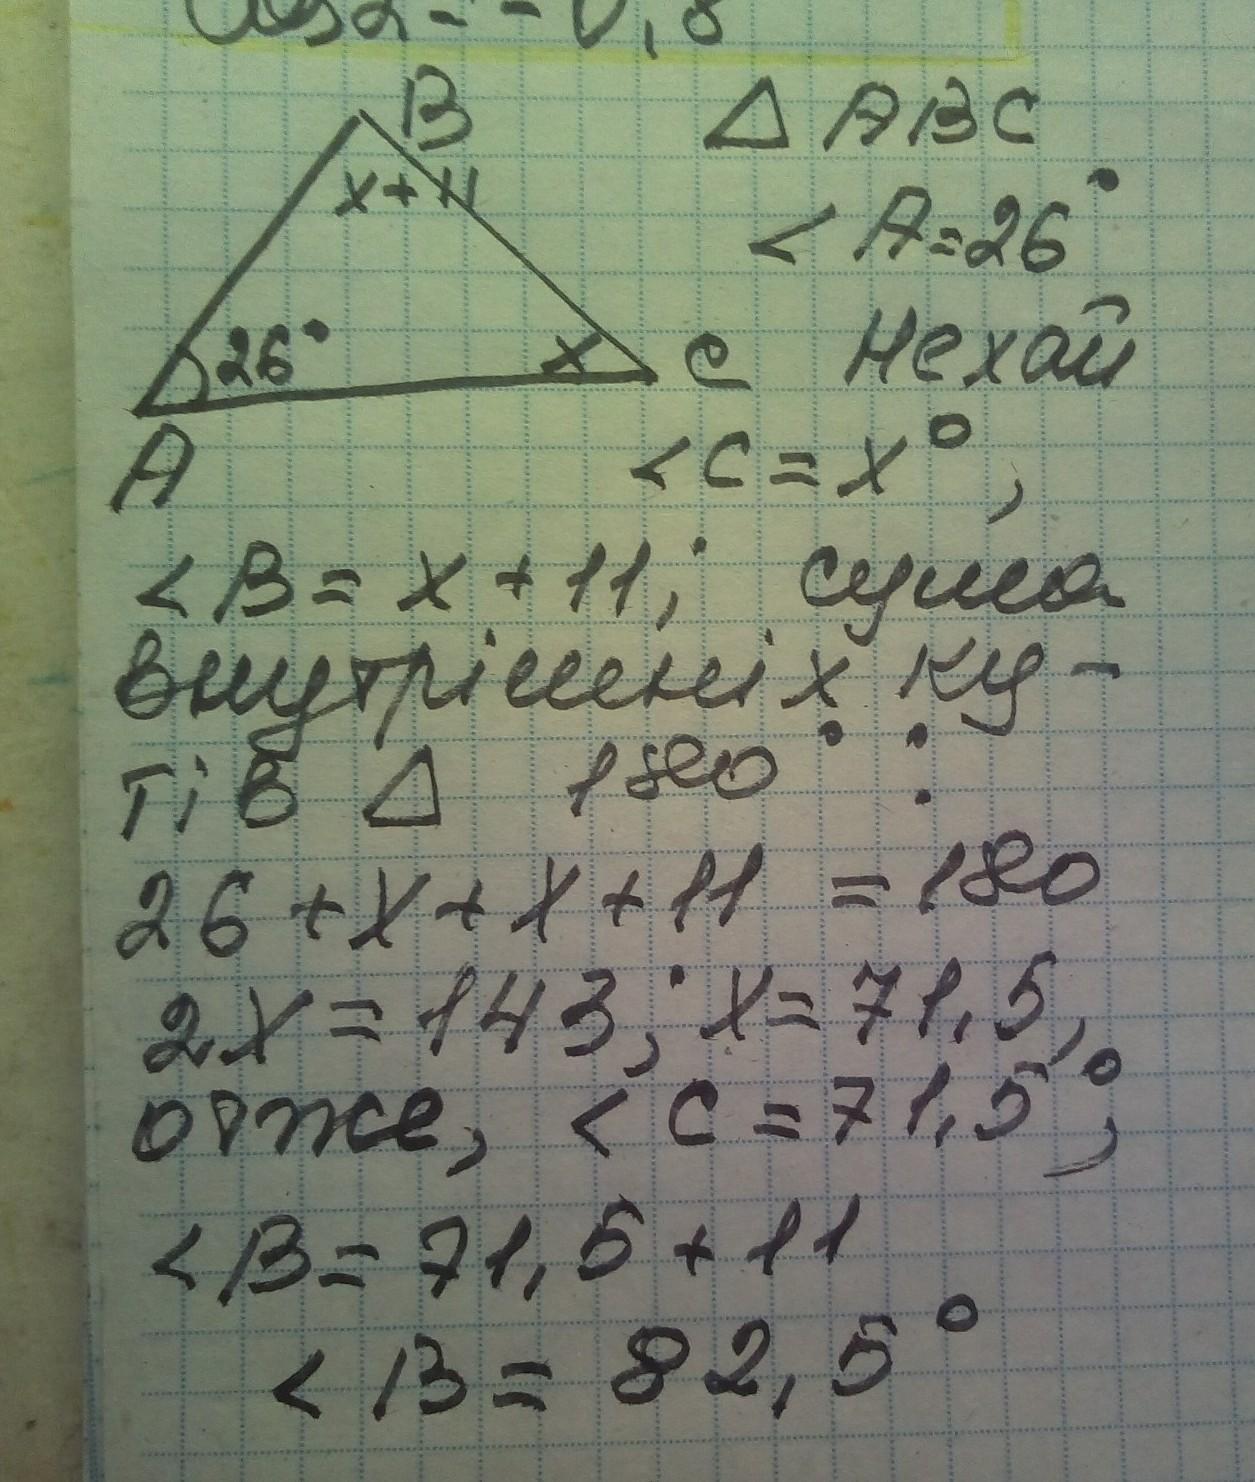 cos2 = -0,8
B △ ABC
x+11 <A=26°
26° x C Нехай
A <C=x°,
<B=x+11; сума
внутрішніх ку-
тів △ 180°:
26+x+x+11=180
2x=143; x=71,5,
отже, <C=71,5°,
<B=71,5+11
<B=82,5°